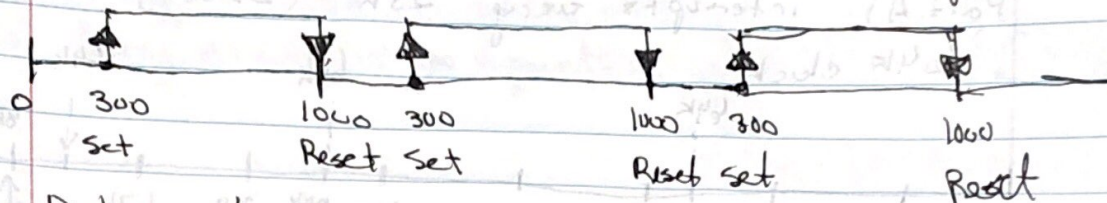 0 300 1000 300 1000 300 1000
Set Reset Set Reset set Reset